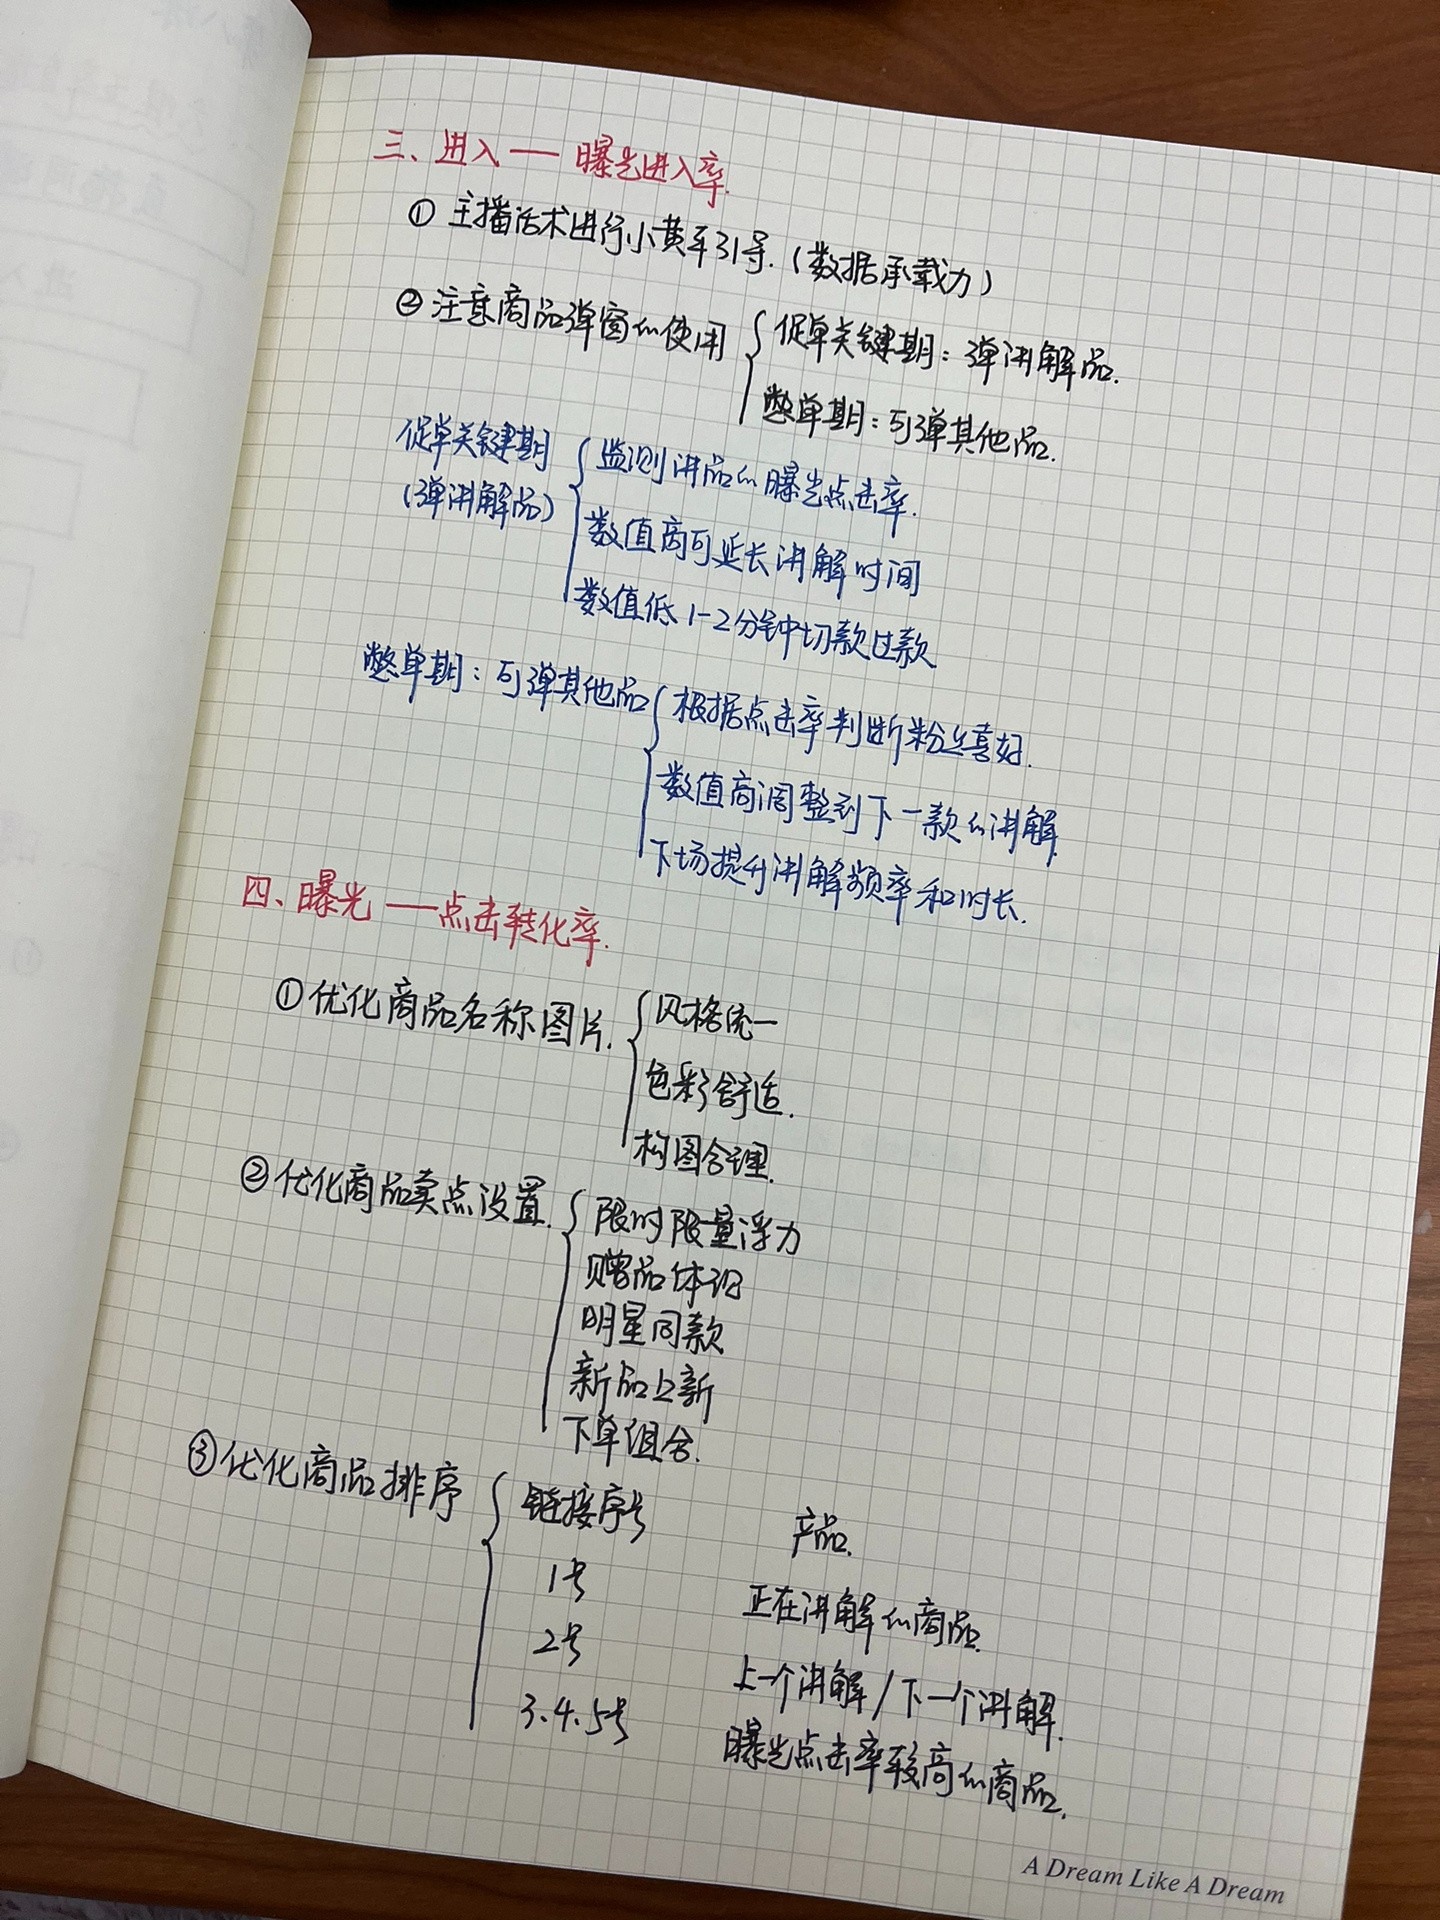 三、进入 —— 曝光进入率.
① 主播话术进行小黄车引导.(数据承载力)
② 注意商品弹窗的使用
促单关键期：弹讲解品.
憋单期：可弹其他品.
促单关键期
(弹讲解品)
监测讲品的曝光点击率.
数值高可延长讲解时间
数值低1-2分钟切款过款
憋单期：可弹其他品
根据点击率判断粉丝喜好.
数值高调整到下一款的讲解
下场提升讲解频率和时长.
四、曝光 —— 点击转化率.
① 优化商品名称图片.
风格统一
色彩舒适.
构图合理.
② 优化商品卖点设置.
限时限量浮力
赠品体现
明星同款
新品上新
下单组合.
③ 优化商品排序
链接序号 产品.
1号 正在讲解的商品.
2号 上一个讲解/下一个讲解.
3.4.5号 曝光点击率较高的商品.
A Dream Like A Dream